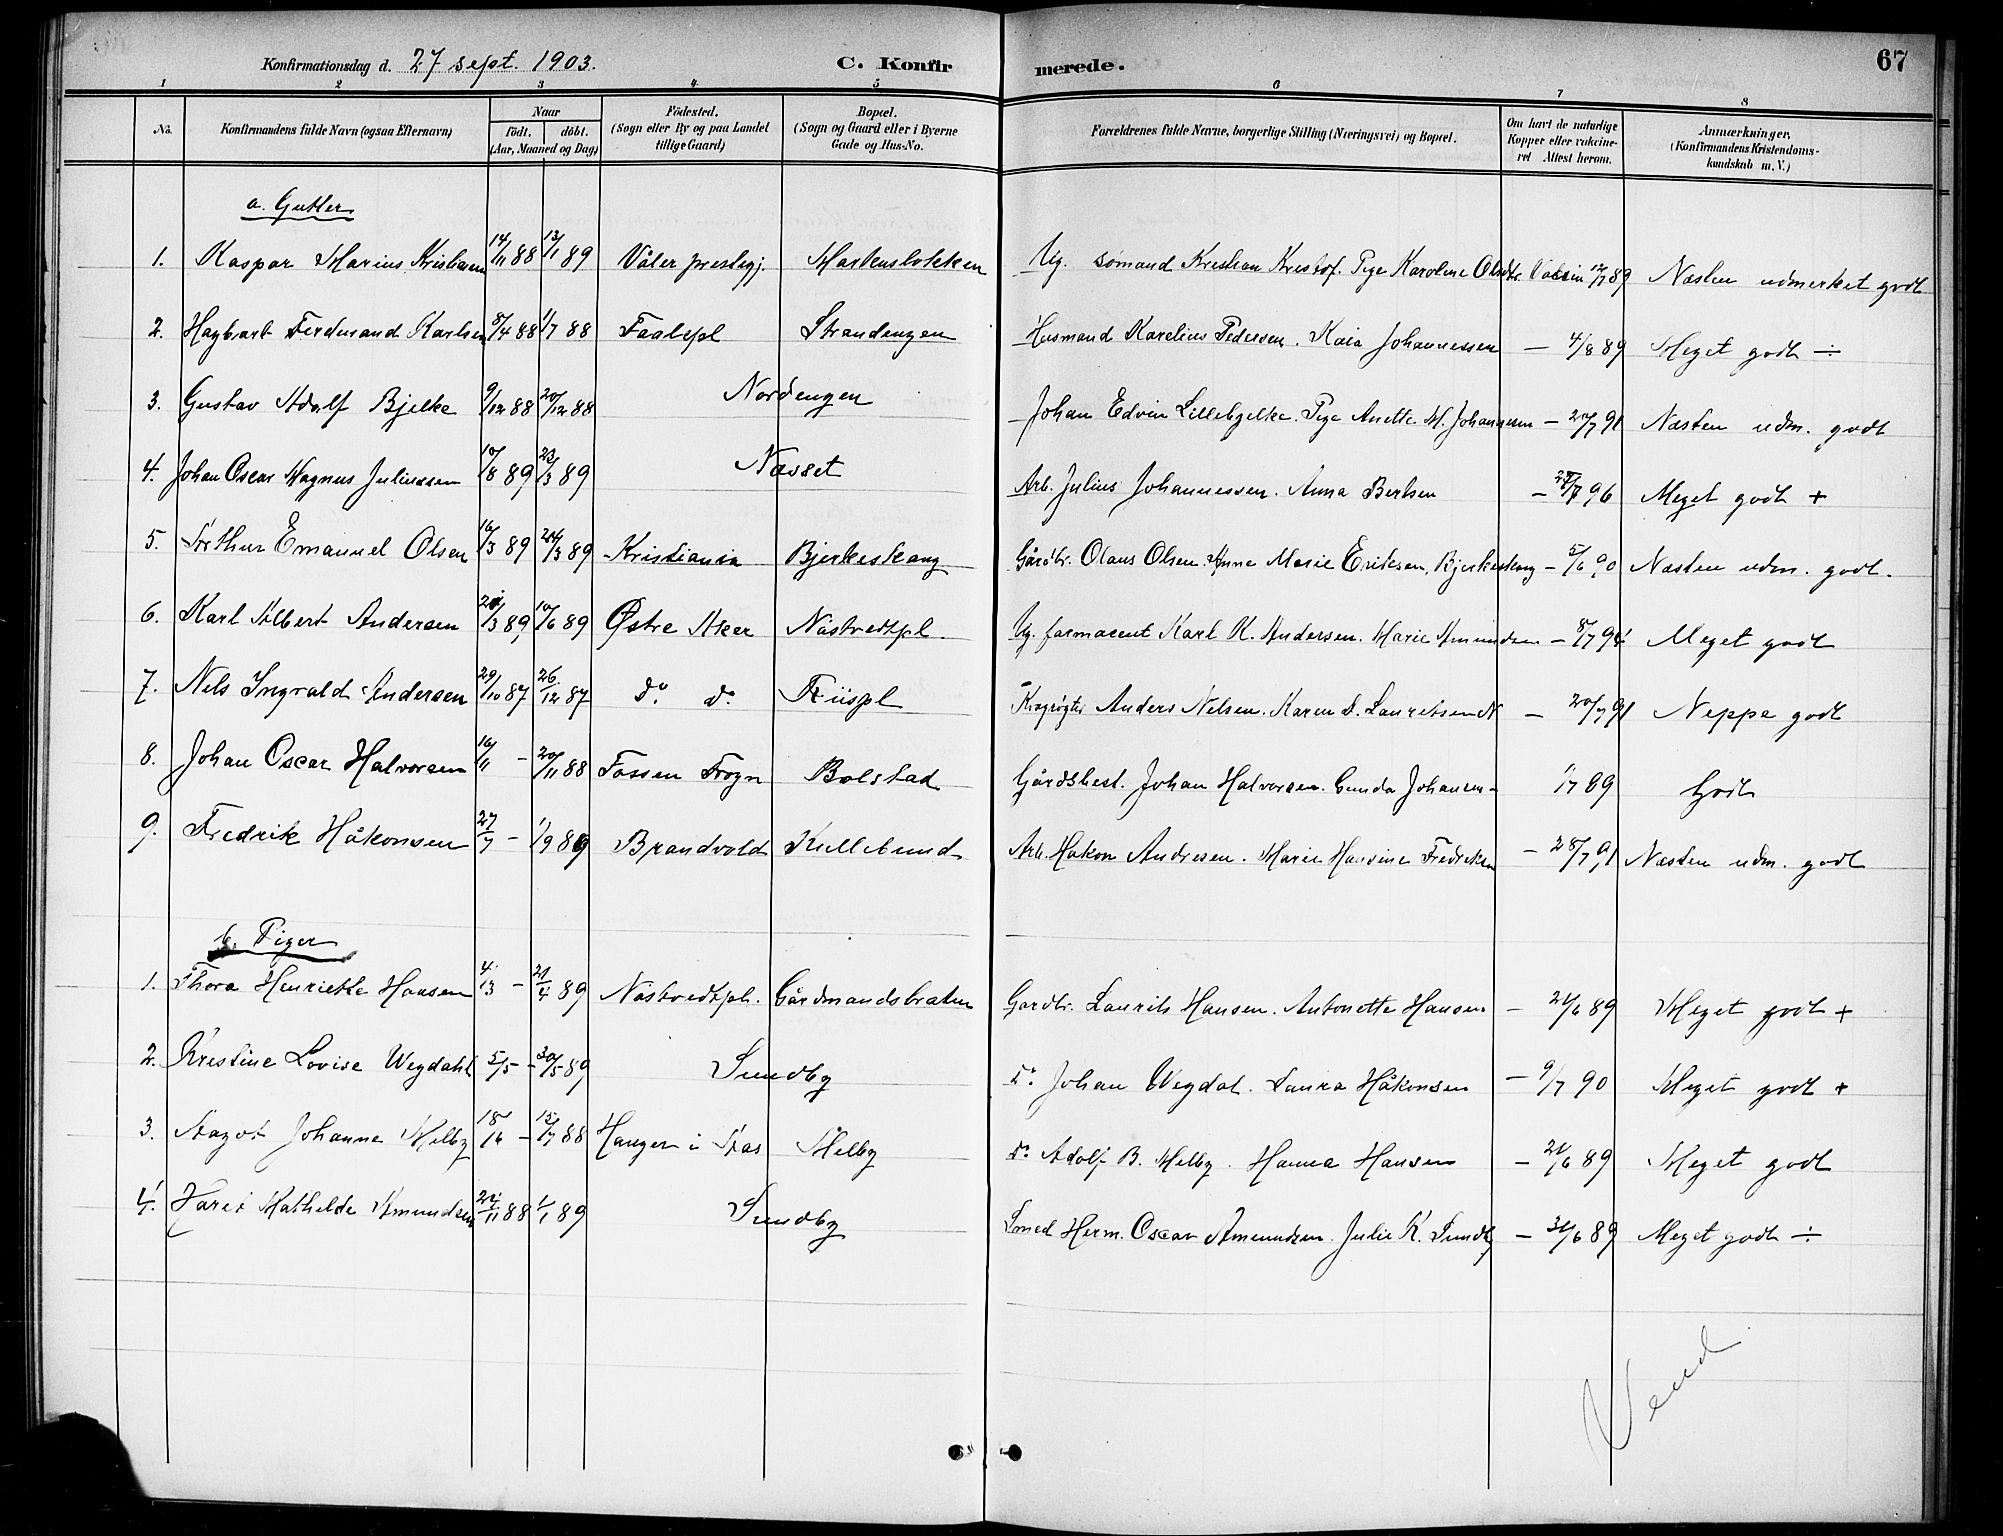 Konfirmationsdag d. 27 sept. 1903. C. Konfirmerede. 67
1 2 3 4 5 6 7 8
No. Konfirmandens fulde Navn (ogsaa Efternavn) Naar født. døbt. (Aar, Maaned og Dag) Födested. (Sogn eller By og paa Landet tillige Gaard) Bopæl. (Sogn og Gaard eller i Byerne Gade og Hus-No. Forældrenes fulde Navne, borgerlige Stilling (Næringsvei) og Bopæl. Om havt de naturlige Kopper eller vakcineret Attest herom. Anmærkninger. (Konfirmandens Kristendomskundskab m. V.)
a. Gutter
1. Kaspar Marius Kristiansen 14/11 88 13/1 89 Våler prestegj. Martensløkken Ug. sømand Kristian Kristof. Pige Karoline Olsdtr. Vaksin 12/7 89 Næsten udmerket godt
2. Hagbart Ferdinand Karlsen 8/4 88 1/7 88 Faalepl Strandengen Husmand Karelius Pedersen. Kaia Johannessen — 4/8 89 Meget godt ÷
3. Gustav Adolf Bjelke 9/12 88 20/12 88 Nordengen Johan Edvin Lillebjelke. Pige Anette M. Johannesen — 20/7 91 Næsten udm. godt
4. Johan Oscar Magnus Juliussen 10/8 89 23/3 89 Næsset Arb. Julius Johannessen. Anna Berlsen — 96 Meget godt +
5. Arthur Emanuel Olsen 16/3 89 24/3 89 Kristiania Bjerkeskaug Gårdbr. Olaus Olsen. Anne Marie Eriksen, Bjerkeskaug — 5/6 90 Næsten udm. godt.
6. Karl Albert Andersen 89 10/6 89 Østre Aker Nåstvedtpl. Ug. farmaceut Karl K. Andersen. Marie Amundsen — 8/7 94 Meget godt
7. Nils Ingvald Andersen 29/10 87 26/12 87 do. do. Friispl Anders Nelsen. Karen D. Lauretsen N — 20/7 91 Neppe godt
8. Johan Oscar Halvorsen 16/11 — 20/11 88 Fossen Frogn Bolstad Gårdsbest. Johan Halvorsen. Gunda Johansen — 1/7 89 Godt
9. Fredrik Håkonsen 27/7 — 1/9 89 Brandvold Kullebund Arb. Håkon Andresen. Marie Hansine Fredriksen — 28/7 91 Næsten udm. godt
b. Piger
1. Thora Henriette Hansen 4/3 — 21/4 89 Nåstvedtpl. Gårdmandsbraten Gardbr. Laurits Hansen. Antonette Hansen — 21/6 89 Meget godt +
2. Kristine Lovise Wegdahl 5/5 — 30/5 89 Sundby do. Johan Wegdal. Laura Håkonsen — 9/7 90 Meget godt +
3. Aagot Johanne Melby 18/6 — 15/7 88 Hauger i Aas Melby do. Adolf B. Melby. Hanna Hansen — 21/6 89 Meget godt
4. Mathilde Amundsen 24/11 88 1/1 89 Sundby Smed Herm. Oscar Amundsen. Julie K. Sundby — 21/6 89 Meget godt ÷
Vend